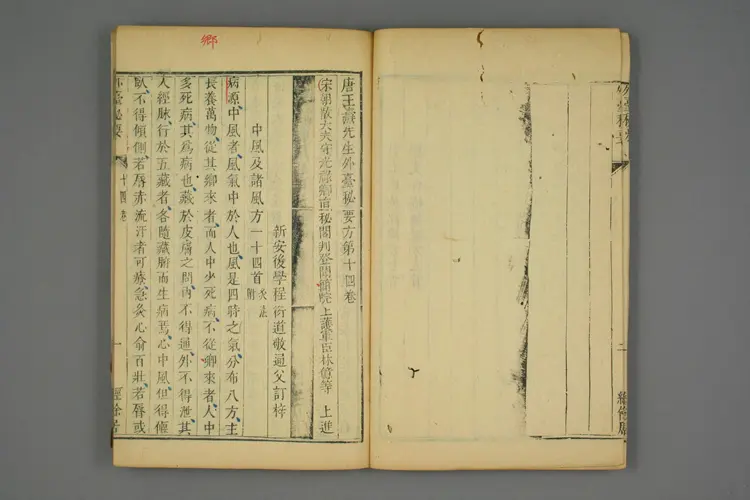 外臺秘要
二
經餘居
鄉
唐王燾先生外臺秘要方第十四卷
宋朝散大夫守光祿卿直秘閣判登聞簡院上護軍臣林億等 上進
新安後學程衍道敬通父訂梓
中風及諸風方一十四首 灸法附
病源中風者風氣中於人也風是四時之氣分布八方主
長養萬物從其鄉來者而人中少死病不從鄉來者人中
多死病其為病也藏於皮膚之間內不得通外不得泄其
入經脉行於五藏者各隨藏腑而生病焉心中風但得偃
臥不得傾側若唇赤流汗者可療急灸心俞百壯若唇或
外臺秘要
十四卷
一
經餘居